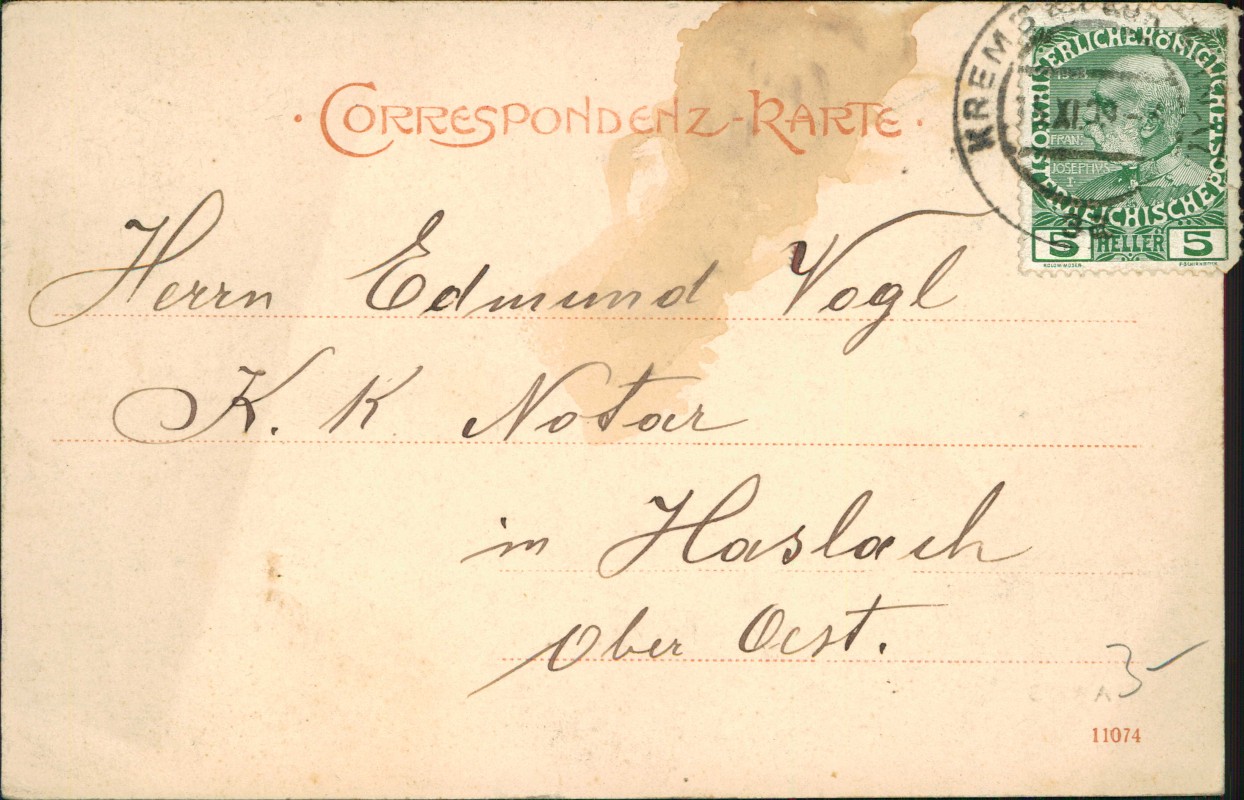 · CORRESPONDENZ-KARTE ·
KREMS
XI
KAISERLICHE KÖNIGLICHE
ÖSTERREICHISCHE POST
FRANZ
JOSEPHVS
I
5 HELLER 5
Herrn Edmund Vogl
K. K Notar
in Haslach
Ober Oest.
3-
11074